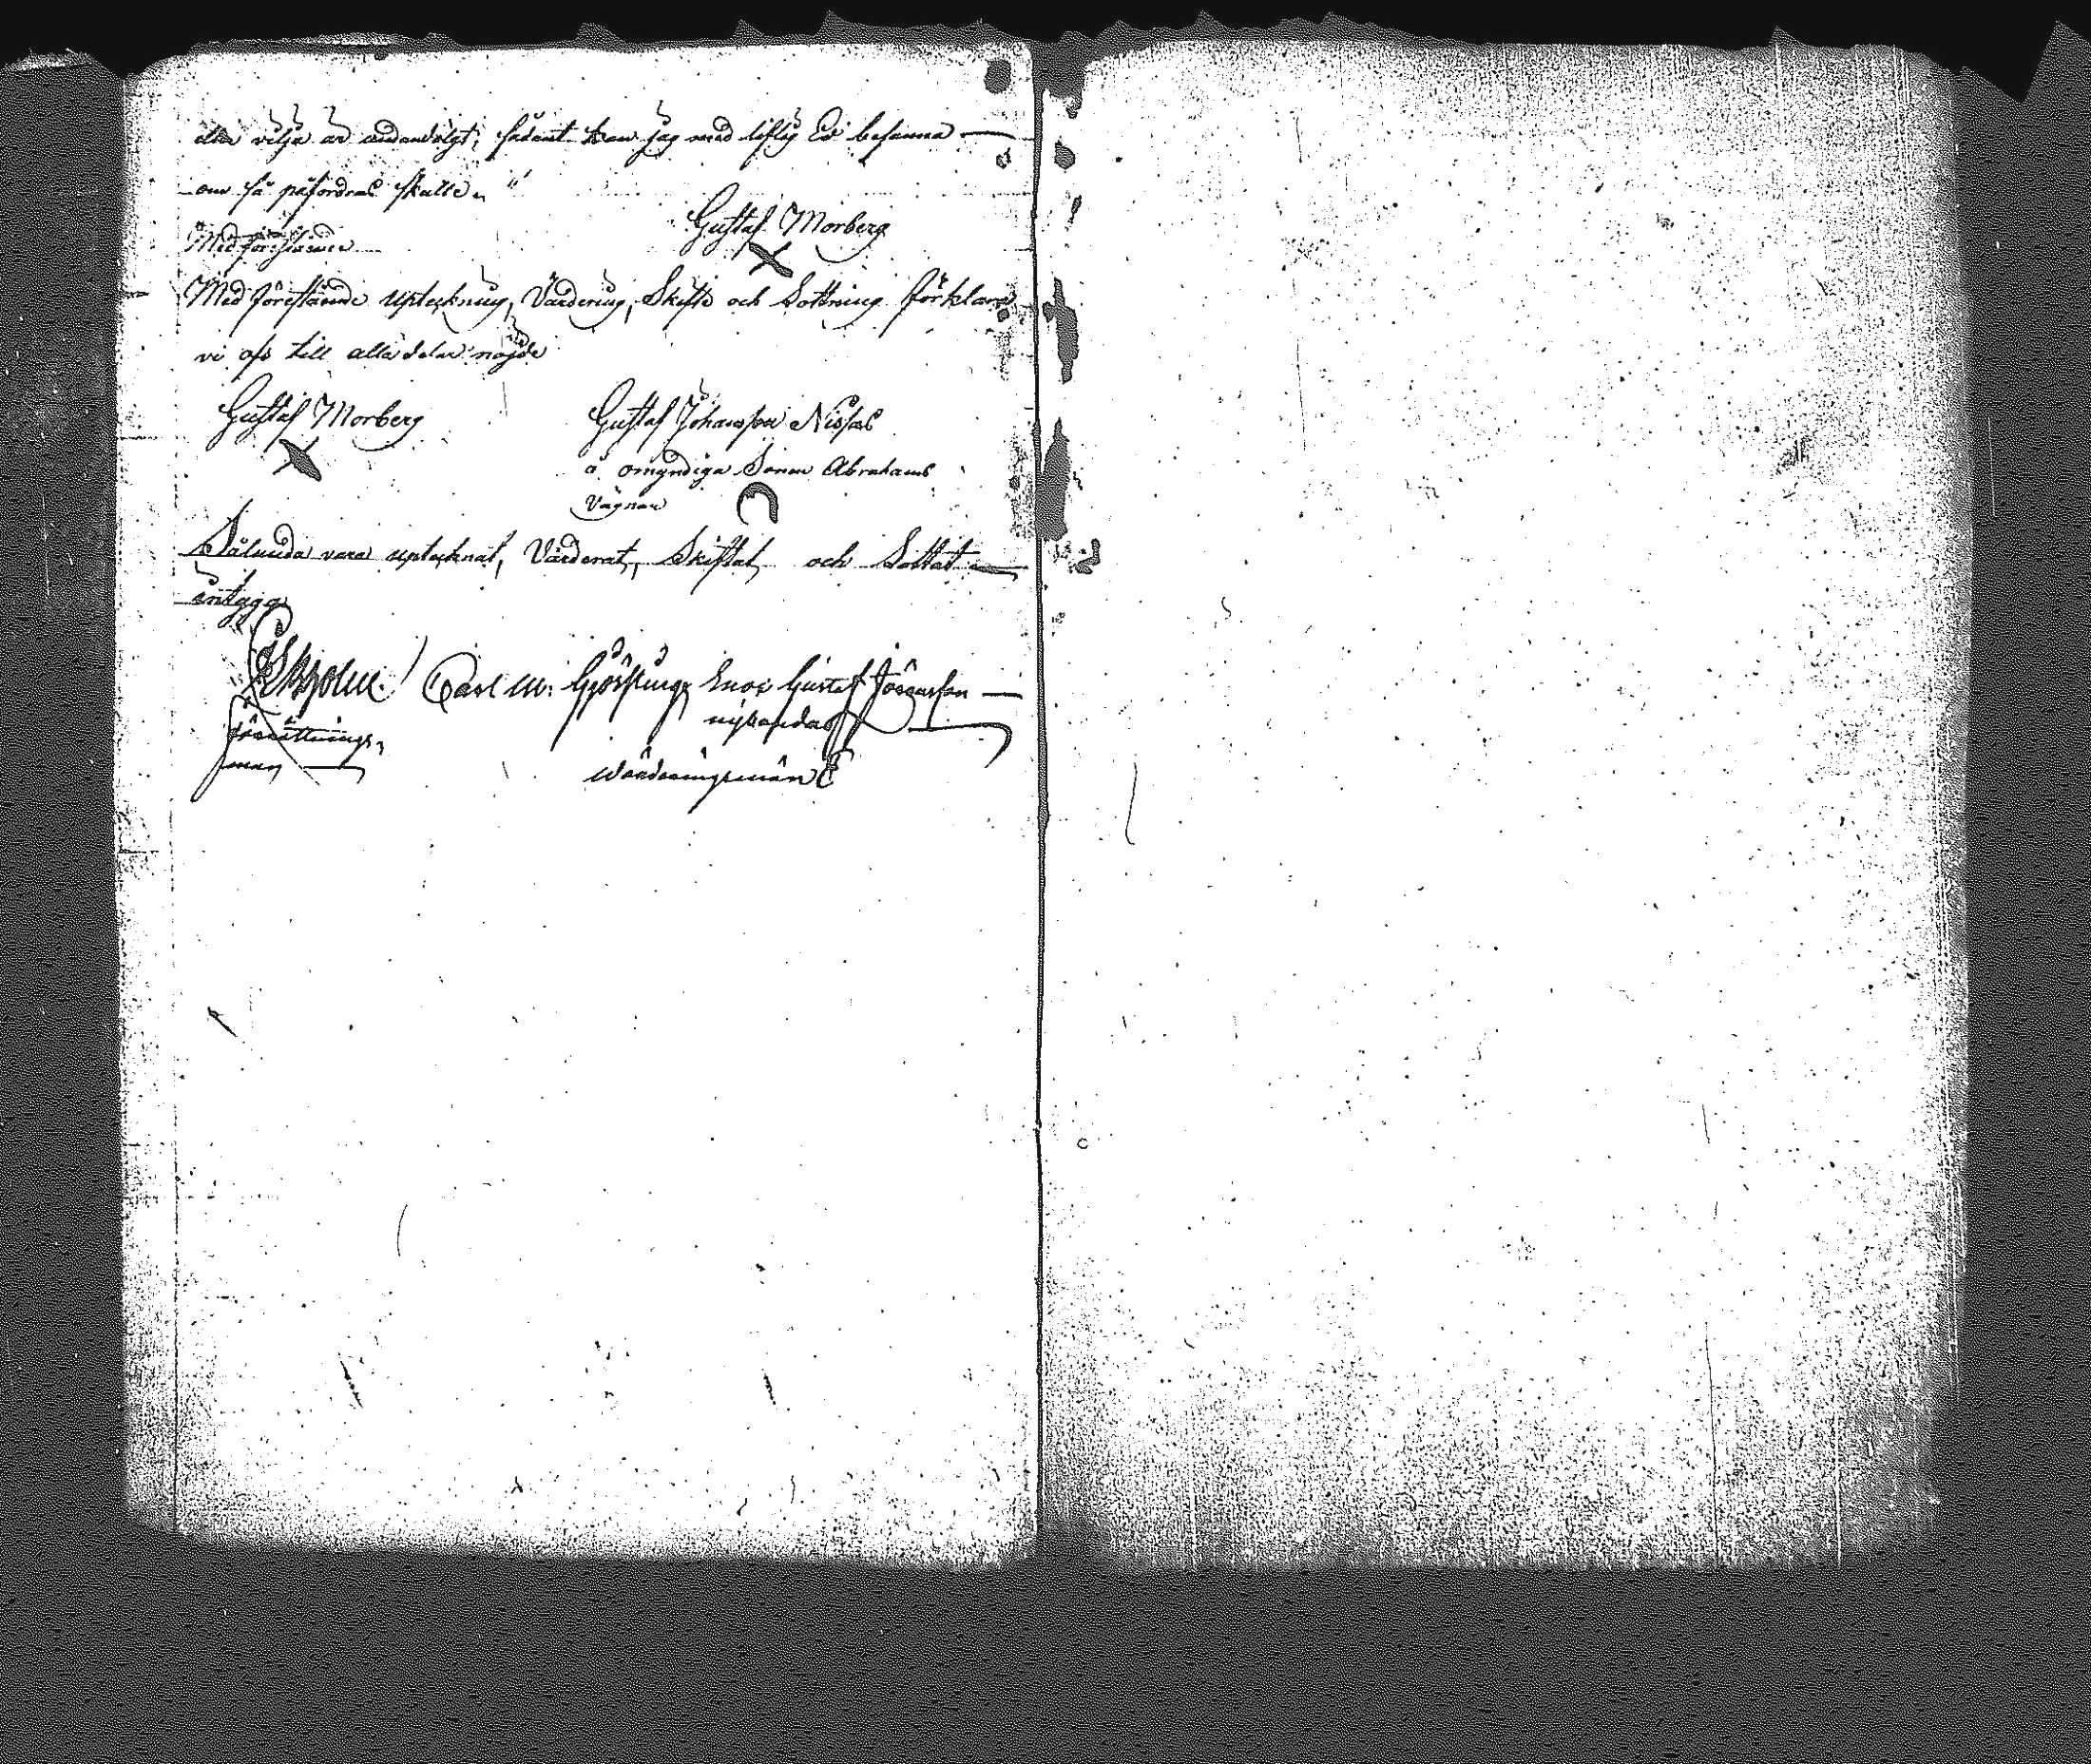 eller vilja är undandolgt; sådant kan jag med liflig Ed besanna
om så påfordras skulle."
Gustaf Morberg
Med förestående
Med förestående uptekning, Värdering, Skifte och Lottning förklara
vi oss till alla delar nöjde
Gustaf Morberg Gustaf Johansson Nissas
å omyndiga Sonen Abrahams
Vägnar
Sålunda vara uptecknat, Värderat, Skiftat och Lottat
intyga
Carl M: Gustaf Göransson
nyvandas
förrättnings
man Wärderingsmän